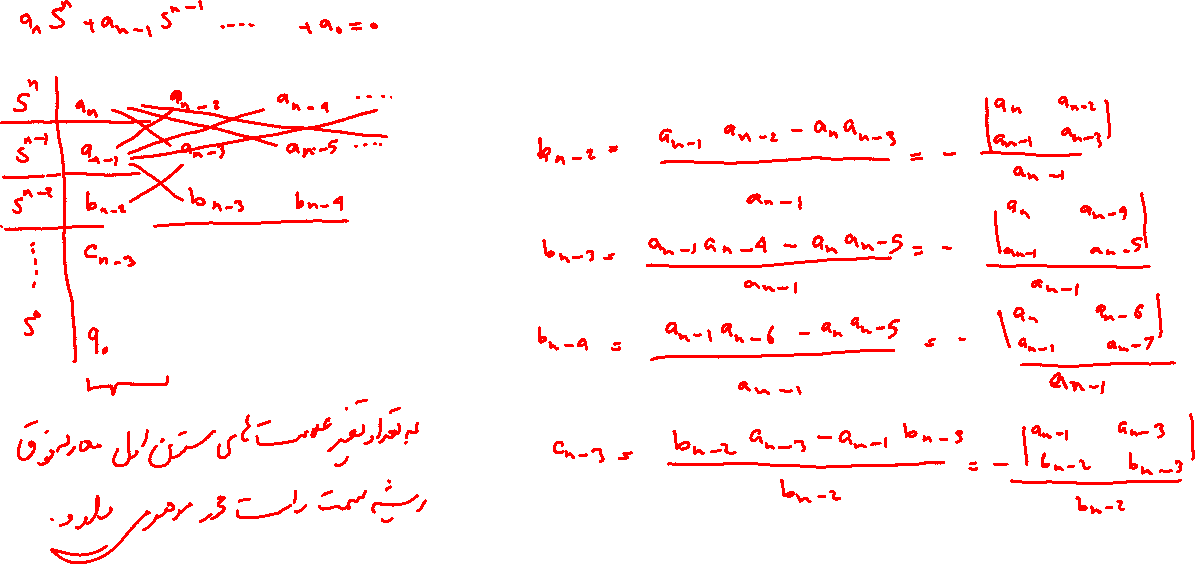 aₙ Sⁿ + aₙ₋₁ Sⁿ⁻¹ ..... + a₀ = ۰
Sⁿ | aₙ aₙ₋₂ aₙ₋₄ .....
Sⁿ⁻¹ | aₙ₋₁ aₙ₋₃ aₙ₋₅ .....
Sⁿ⁻² | bₙ₋₂ bₙ₋₃ bₙ₋₄
⋮ | cₙ₋₃
S⁰ | a₀
به تعداد تغییر علامت‌های ستون اول معادله فوق
ریشه سمت راست محور موهومی داریم.
bₙ₋₂ = (aₙ₋₁ aₙ₋₂ − aₙ aₙ₋₃) / aₙ₋₁ = − |aₙ aₙ₋₂; aₙ₋₁ aₙ₋₃| / aₙ₋₁
bₙ₋₃ = (aₙ₋₁ aₙ₋₄ − aₙ aₙ₋₅) / aₙ₋₁ = − |aₙ aₙ₋₄; aₙ₋₁ aₙ₋₅| / aₙ₋₁
bₙ₋₄ = (aₙ₋₁ aₙ₋₆ − aₙ aₙ₋₅) / aₙ₋₁ = − |aₙ aₙ₋₆; aₙ₋₁ aₙ₋₇| / aₙ₋₁
cₙ₋₃ = (bₙ₋₂ aₙ₋₃ − aₙ₋₁ bₙ₋₃) / bₙ₋₂ = − |aₙ₋₁ aₙ₋₃; bₙ₋₂ bₙ₋₃| / bₙ₋₂